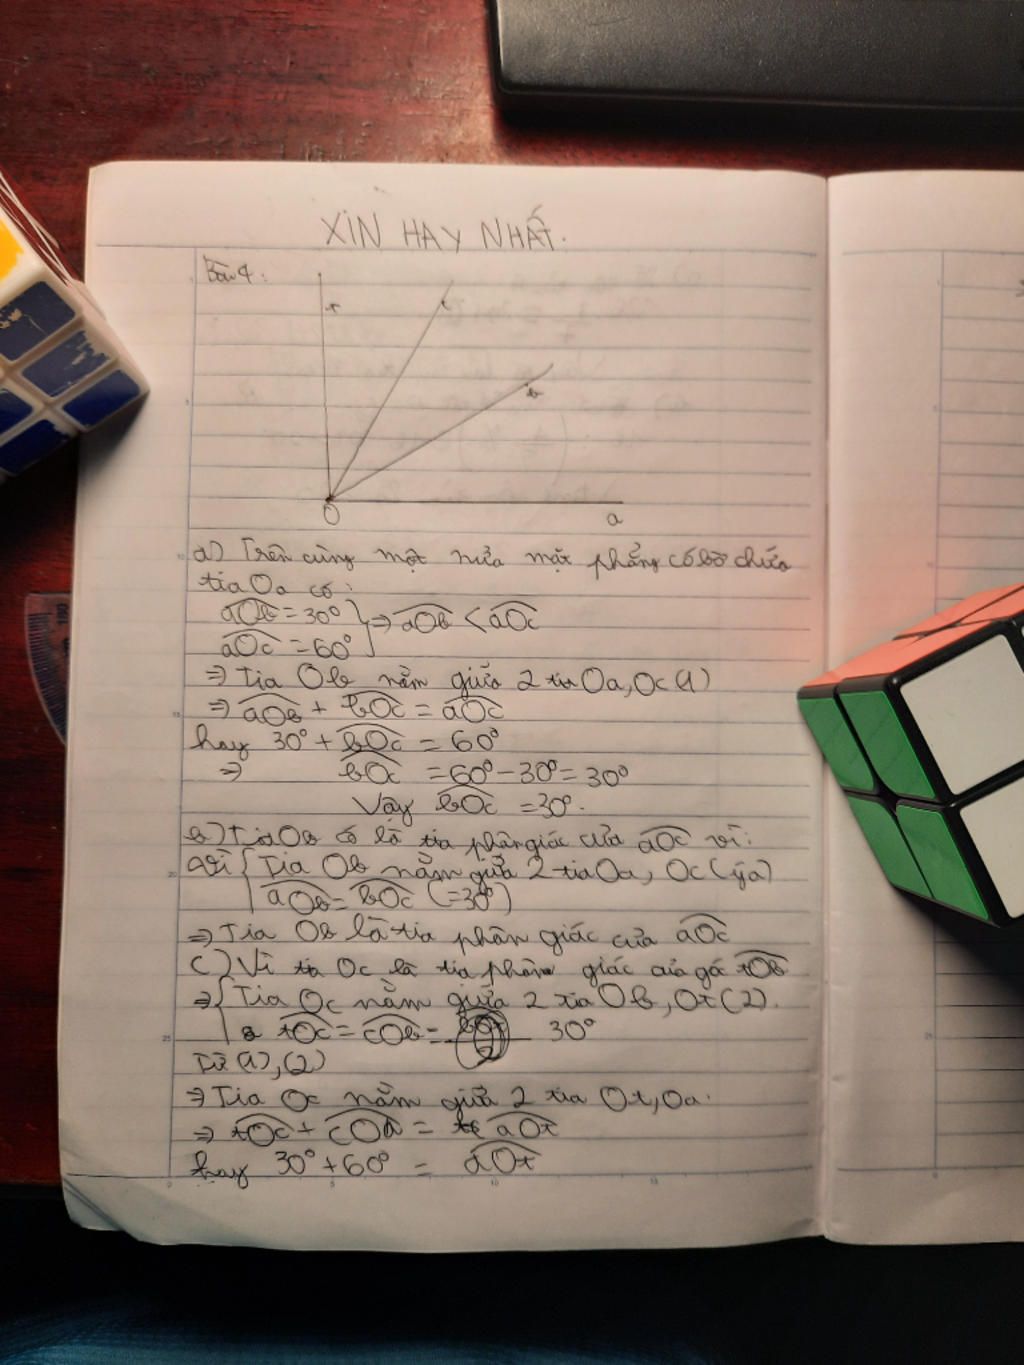 XIN HAY NHẤT.
Bài 4:
t
c
b
O
a
a) Trên cùng một nửa mặt phẳng có bờ chứa
tia Oa có:
aOb = 30°
aOc = 60°
⇒ aOb < aOc
⇒ Tia Ob nằm giữa 2 tia Oa, Oc (1)
⇒ aOb + bOc = aOc
hay 30° + bOc = 60°
⇒ bOc = 60° - 30° = 30°
Vậy bOc = 30°.
b) Tia Ob có là tia phân giác của aOc vì:
Vì { Tia Ob nằm giữa 2 tia Oa, Oc (ý a)
aOb = bOc (=30°)
⇒ Tia Ob là tia phân giác của aOc
c) Vì tia Oc là tia phân giác của gó tOb
⇒ { Tia Oc nằm giữa 2 tia Ob, Ot (2).
tOc = cOb = 30°
Từ (1), (2)
⇒ Tia Oc nằm giữa 2 tia Ot, Oa.
⇒ tOc + cOa = aOt
hay 30° + 60° = aOt